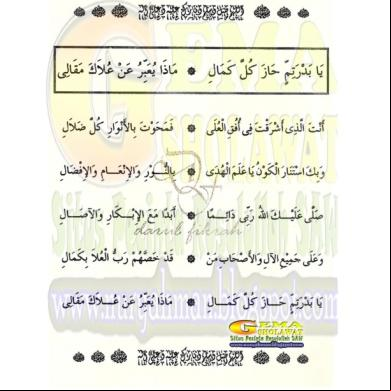 يَا بَدْرَتِمٍّ حَازَ كُلَّ كَمَالِ ۞ مَاذَا يُعَبِّرُ عَنْ عُلَاكَ مَقَالِى
أَنْتَ الَّذِى أَشْرَقْتَ فِى أُفُقِ الْعُلَى ۞ فَمَحَوْتَ بِالْأَنْوَارِ كُلَّ ضَلَالِ
وَبِكَ اسْتَنَارَ الْكَوْنُ يَا عَلَمَ الْهُدَى ۞ بِالنُّوْرِ وَالْإِنْعَامِ وَالْإِفْضَالِ
صَلَّى عَلَيْكَ اللهُ رَبِّى دَائِمًا ۞ أَبَدًا مَعَ الْإِبْكَارِ وَالْآصَالِ
وَعَلَى جَمِيْعِ الْآلِ وَالْأَصْحَابِ مَنْ ۞ قَدْ خَصَّهُمْ رَبُّ الْعُلَا بِكَمَالِ
يَا بَدْرَتِمٍّ حَازَ كُلَّ كَمَالِ ۞ مَاذَا يُعَبِّرُ عَنْ عُلَاكَ مَقَالِى
GEMA
SHOLAWAT
Situs Pecinta Rasulullah SAW
darul fikrah